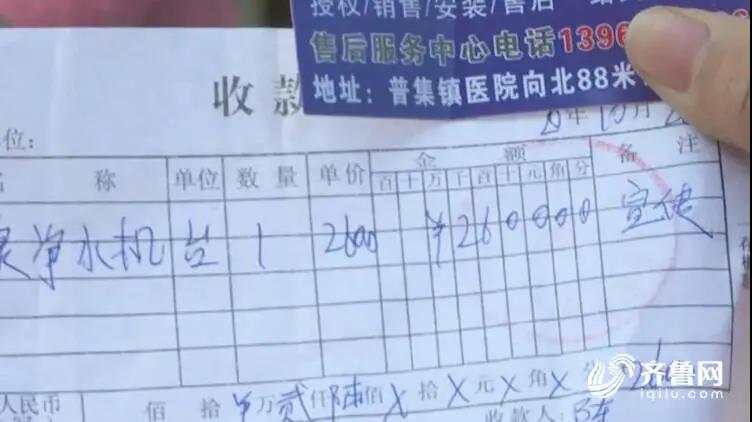 授权/销售/安装/售后
售后服务中心电话1396
地址：普集镇医院向北88米
收款
年10月
位：
名称 单位 数量 单价 金额 备注
百十万千百十元角分
净水机 台 1 2600 ¥260000 宣传
人民币 佰 拾 ¥万贰仟陆佰X拾X元X角X分 2600
收款人：陈
齐鲁网
iqilu.com